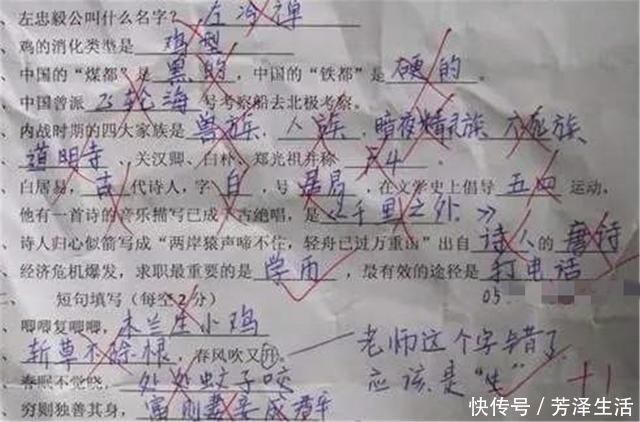 左忠毅公叫什么名字? 左冷禅
、鸡的消化类型是 鸡型
、中国的“煤都”是 黑的 ,中国的“铁都”是 硬的 。
、中国曾派 飞轮海 号考察船去北极考察。
、内战时期的四大家族是 兽族、人族、暗夜精灵族、不死族
、道明寺、关汉卿、白朴、郑光祖并称 F4 。
、白居易, 古 代诗人,字 白 ,号 居易 ,在文学史上倡导 五四 运动,
他有一首诗的音乐描写已成千古绝唱,是 《千里之外》
、诗人归心似箭写成“两岸猿声啼不住,轻舟已过万重山”出自 诗人 的 唐诗
、经济危机爆发,求职最重要的是 学历 ,最有效的途径是 打电话
05
二、 短句填写(每空2分)
、唧唧复唧唧, 木兰生小鸡
、斩草不除根 ,春风吹又开。——老师这个字错了
应该是“生”
+1
春眠不觉晓, 处处蚊子咬
、穷则独善其身, 富则妻妾成群
快传号/芳泽生活